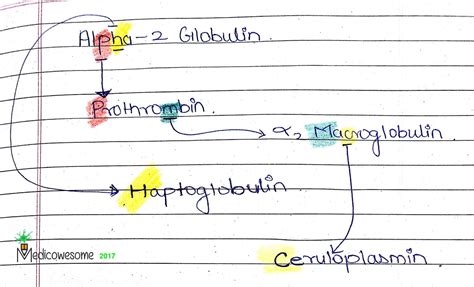 Alpha-2 Globulin.
Prothrombin.
α₂ Macroglobulin.
Haptoglobulin.
Ceruloplasmin.
Medicowesome 2017